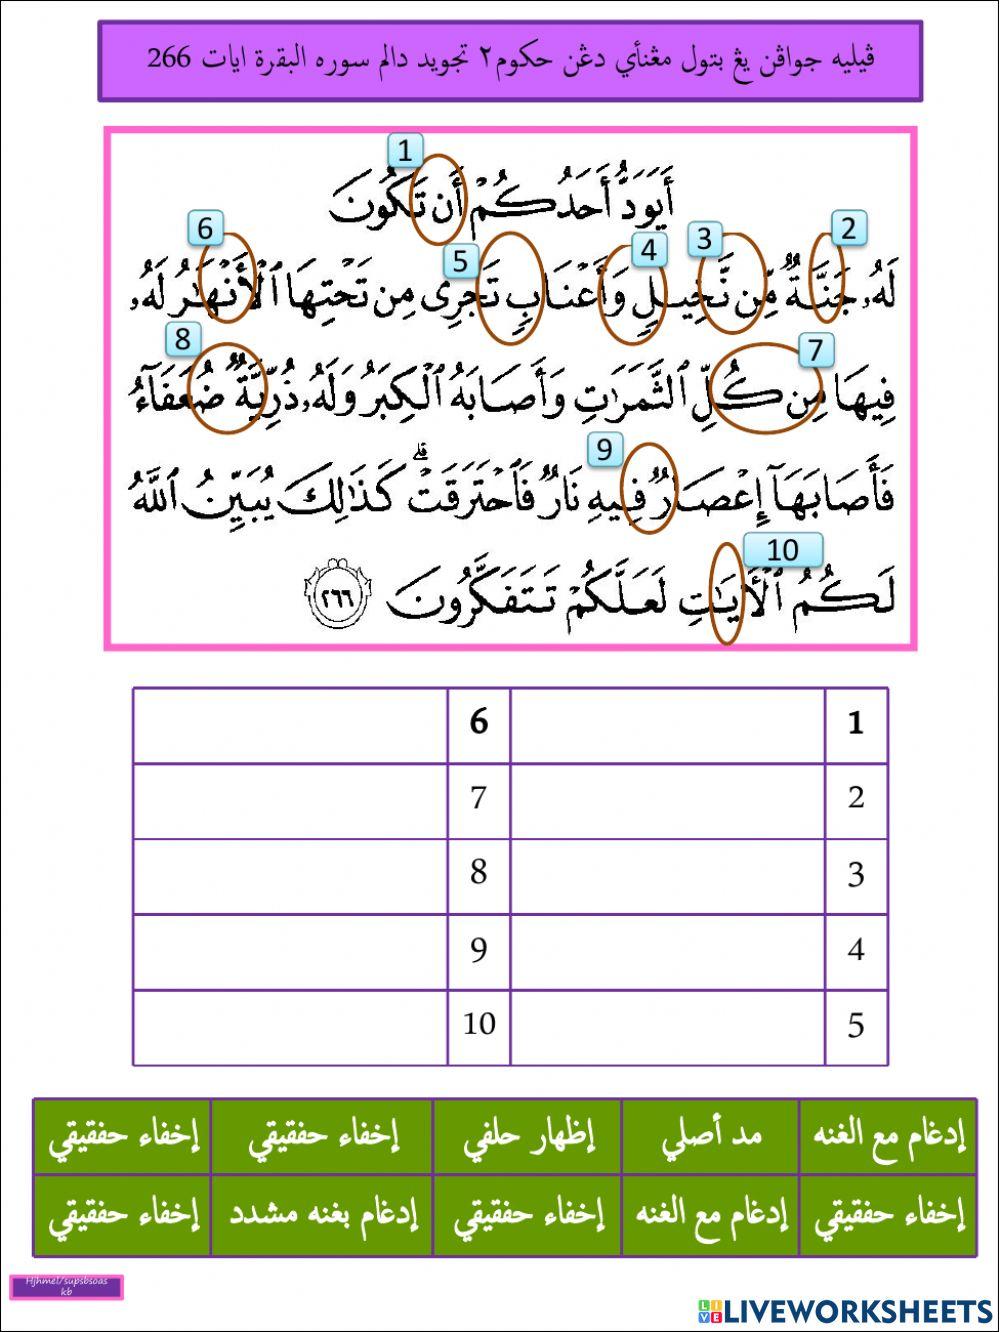 ڤيليه جواڤن يڠ بتول مڠنأي دڠن حكوم٢ تجويد دالم سوره البقرة ايات 266
1
أَيَوَدُّ أَحَدُكُمْ أَن تَكُونَ
6 5 4 3 2
لَهُۥ جَنَّةٌ مِّن نَّخِيلٍ وَأَعْنَابٍ تَجْرِى مِن تَحْتِهَا ٱلْأَنْهَٰرُ لَهُۥ
8 7
فِيهَا مِن كُلِّ ٱلثَّمَرَٰتِ وَأَصَابَهُ ٱلْكِبَرُ وَلَهُۥ ذُرِّيَّةٌ ضُعَفَآءُ
9
فَأَصَابَهَآ إِعْصَارٌ فِيهِ نَارٌ فَٱحْتَرَقَتْ ۗ كَذَٰلِكَ يُبَيِّنُ ٱللَّهُ
10
لَكُمُ ٱلْأَيَٰتِ لَعَلَّكُمْ تَتَفَكَّرُونَ ٢٦٦
1 6
2 7
3 8
4 9
5 10
إدغام مع الغنه مد أصلي إظهار حلفي إخفاء حفقيقي إخفاء حفقيقي
إخفاء حفقيقي إدغام مع الغنه إخفاء حفقيقي إدغام بغنه مشدد إخفاء حفقيقي
Hjhmel/supsbsoas
kb
LIVE LIVEWORKSHEETS